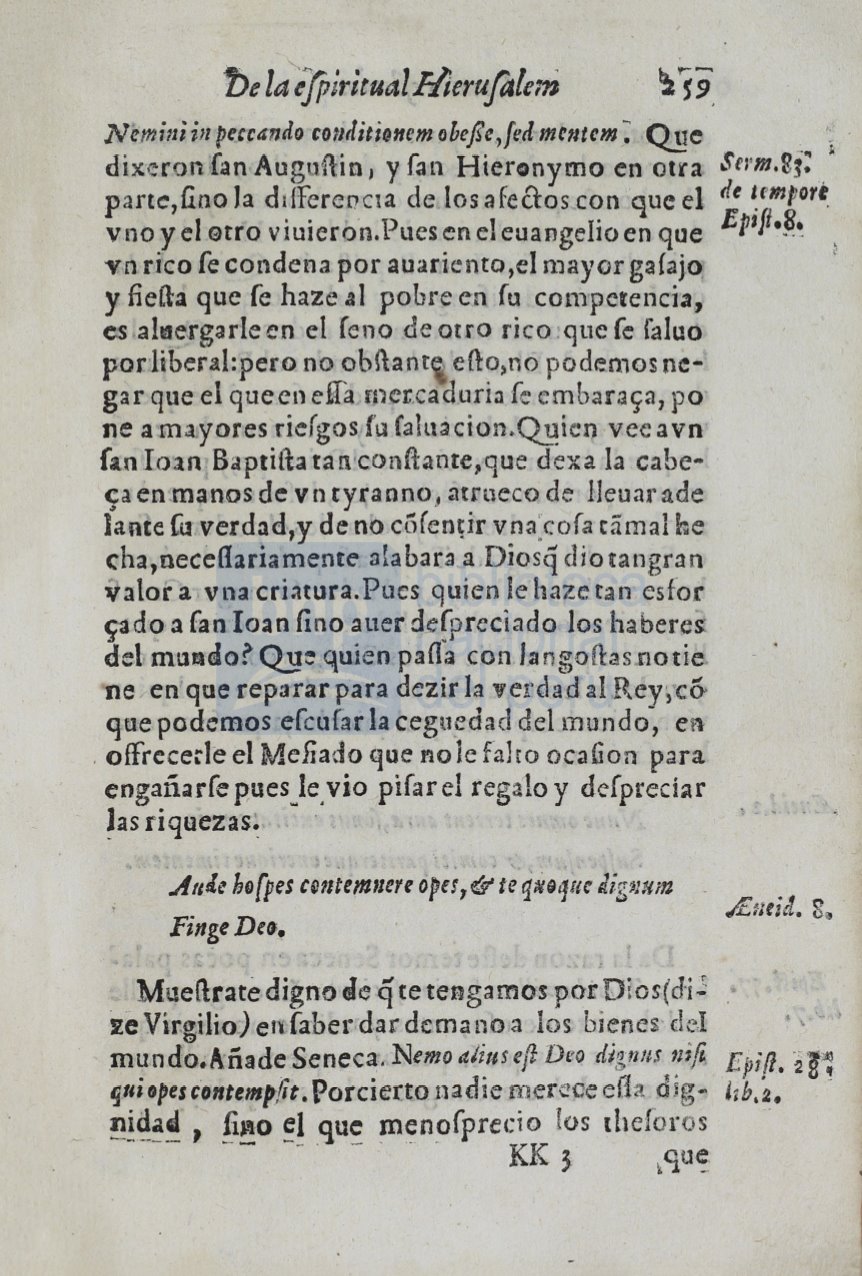 De la eſpiritual Hieruſalem 259
Nemini in peccando conditionem obeſſe, ſed mentem. Que
dixeron ſan Auguſtin, y ſan Hieronymo en otra
parte, ſino la differencia de los afectos con que el
vno y el otro viuieron. Pues en el euangelio en que
vn rico ſe condena por auariento, el mayor gaſajo
y fieſta que ſe haze al pobre en ſu competencia,
es aluergarle en el ſeno de otro rico que ſe ſaluo
por liberal: pero no obſtante eſto, no podemos ne-
gar que el que en eſſa mercaduria ſe embaraça, po
ne a mayores rieſgos ſu ſaluacion. Quien vee a vn
ſan Ioan Baptiſta tan conſtante, que dexa la cabe-
ça en manos de vn tyranno, atrueco de lleuar ade
lante ſu verdad, y de no cõſentir vna coſa tã mal he
cha, neceſſariamente alabara a Dios q̃ dio tan gran
valor a vna criatura. Pues quien le haze tan esfor
çado a ſan Ioan ſino auer deſpreciado los haberes
del mundo? Que quien paſſa con langoſtas no tie
ne en que reparar para dezir la verdad al Rey, cõ
que podemos eſcuſar la ceguedad del mundo, en
offrecerle el Meſiado que no le falto ocaſion para
engañarſe pues le vio piſar el regalo y deſpreciar
las riquezas.
Aude hoſpes contemnere opes, & te quoque dignum
Finge Deo.
Mueſtrate digno de q̃ te tengamos por Dios (di-
ze Virgilio) en ſaber dar de mano a los bienes del
mundo. Añade Seneca. Nemo alius eſt Deo dignus niſi
qui opes contempſit. Por cierto nadie merece eſſa dig-
nidad, ſino el que menoſprecio los theſoros
KK 3 que
Serm. 83.
de tempore
Epiſt. 8.
Æneid. 8.
Epiſt. 28.
lib. 2.